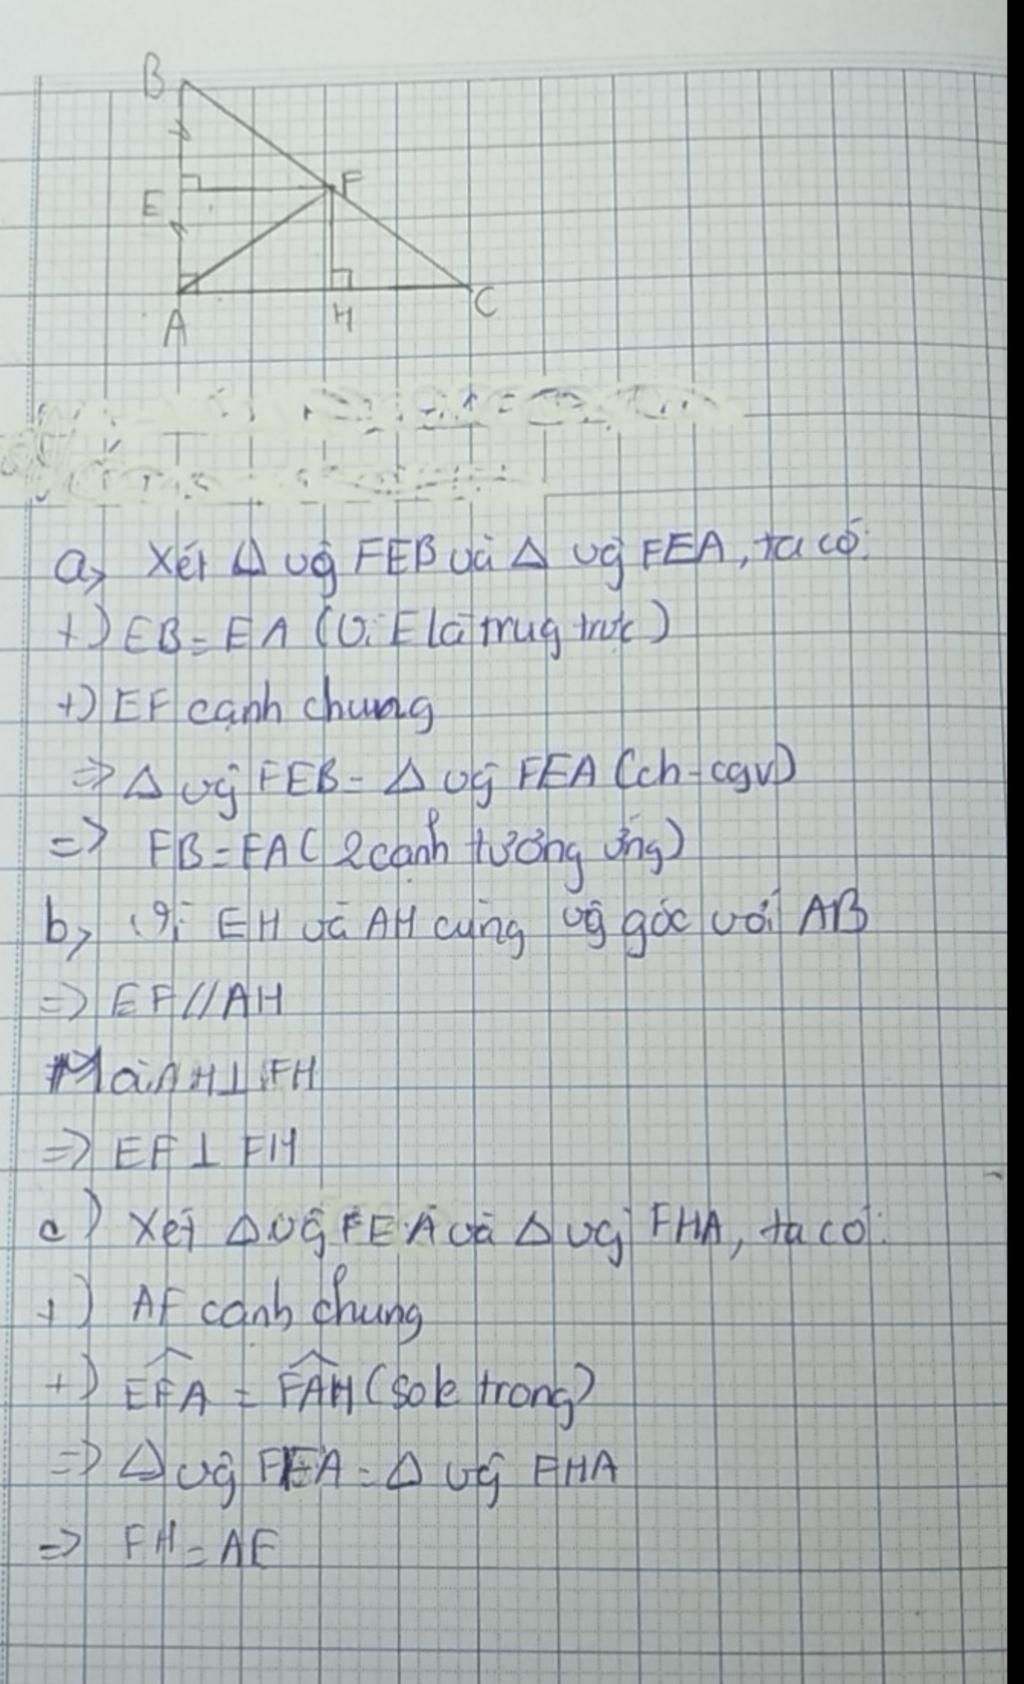 B
E
F
A
H
C
a, Xét Δ vg FEB và Δ vg FEA, ta có:
+) EB = EA (Vì E là trug trực)
+) EF cạnh chung
=> Δ vg FEB = Δ vg FEA (ch-cgv)
=> FB = FA ( 2 cạnh tương ứng)
b, Vì EH và AH cùng vg góc với AB
=> EF // AH
Mà AH ⊥ FH
=> EF ⊥ FH
c) Xét Δ vg FEA và Δ vg FHA, ta có:
+) AF cạnh chung
+) EFA = FAH (sole trong)
=> Δ vg FEA = Δ vg FHA
=> FH = AE